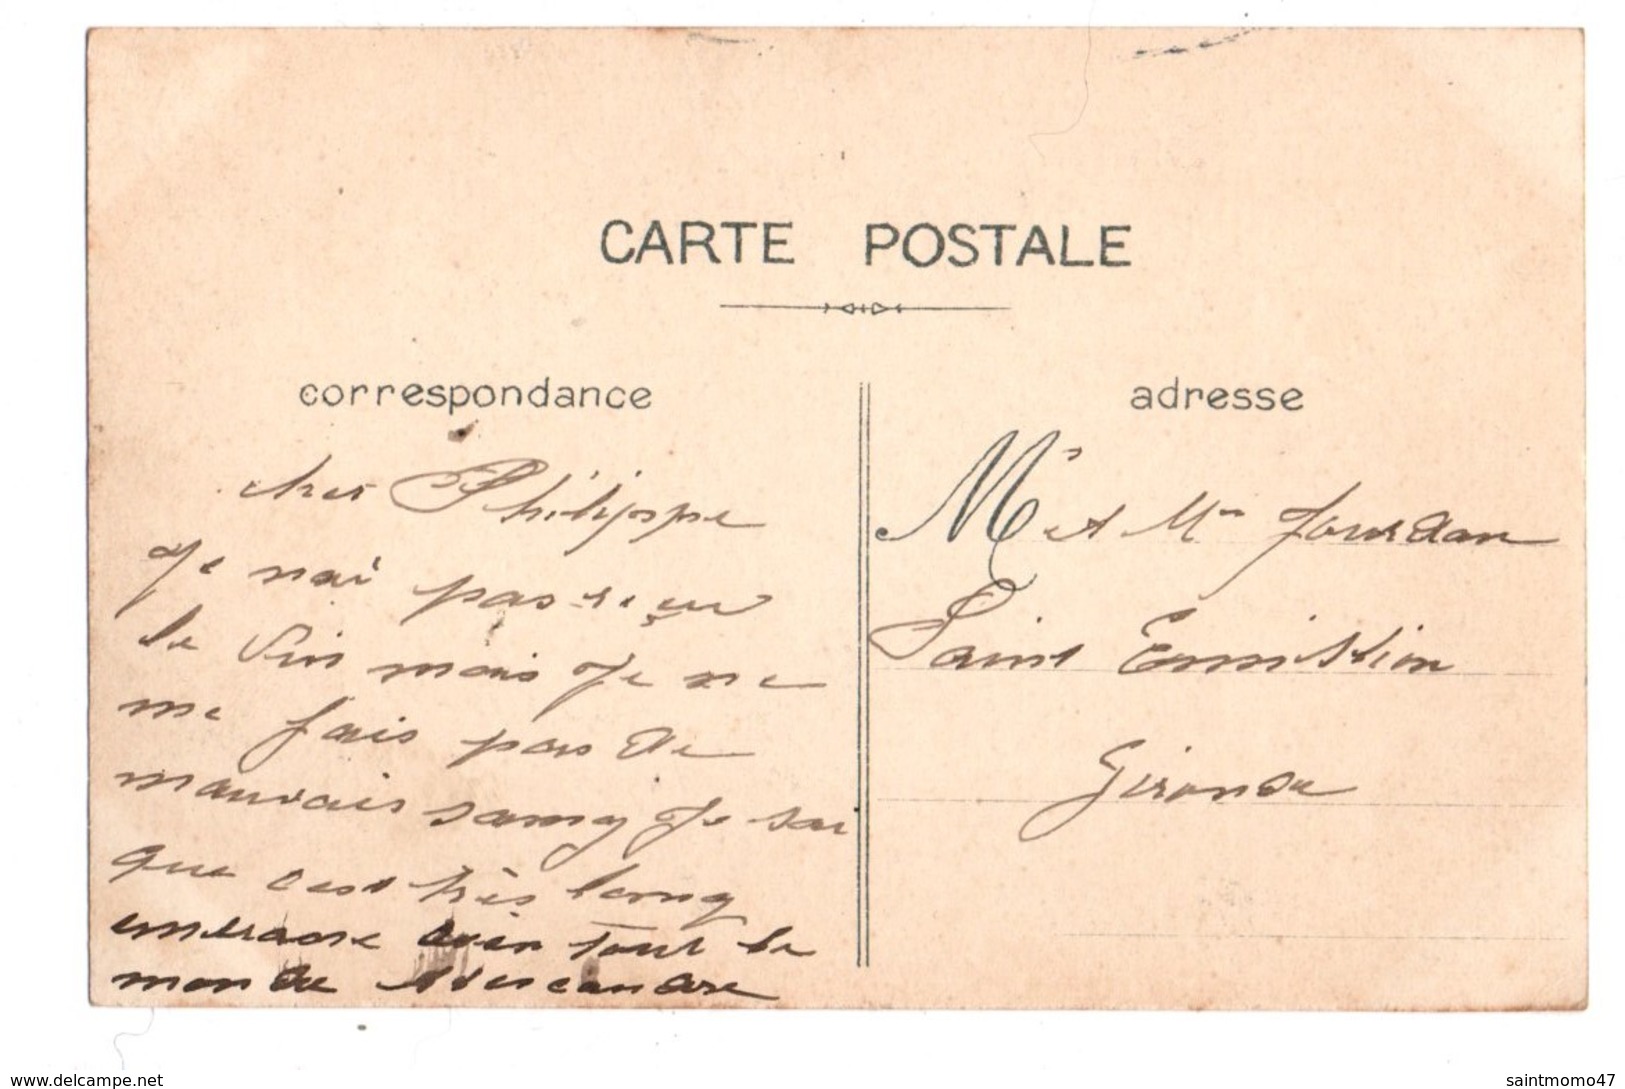 CARTE POSTALE
correspondance
adresse
cher Philippe
Je nai pas reçu
le vin mais Je ne
me fais pas de
mauvais sang Je sai
que cest très long
embrasse bien tout le
monde Alexcandre
Mr et Mme Jourdan
Saint Emistion
Gironde
www.delcampe.net
saintmomo47